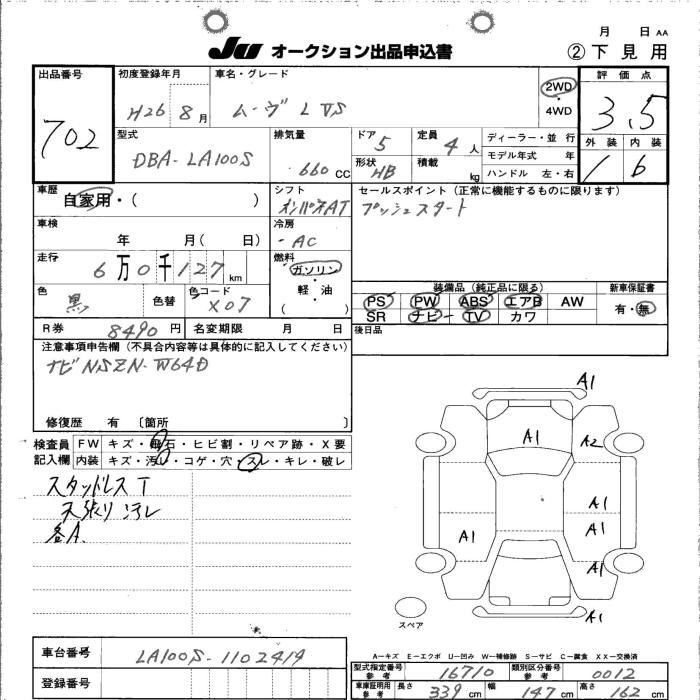 月 日 AA
JU オークション出品申込書 ②下見用
出品番号 初度登録年月 車名・グレード 2WD 4WD 評価点
702 H26 8月 ムーヴ L VS 3.5
型式 排気量 ドア 定員 ディーラー・並行 外装 内装
DBA-LA100S 660CC 5 4人 モデル年式 年 1 6
形状 HB 積載 kg ハンドル 左・右
車歴 シフト セールスポイント(正常に機能するものに限ります)
自家用・( ) インパネAT プッシュスタート
車検 冷房
年 月( 日) AC
走行 燃料
6万0千127km ガソリン・軽・油 ( )
色 色替 色コード 装備品(純正品に限る) 新車保証書
黒 X07 PS PW ABS エアB AW 有・無
SR ナビ TV カワ
R券 8490円 名変期限 月 日 後日品
注意事項申告欄(不具合内容等は具体的に記入してください)
ナビ NSZN-W64D
修復歴 有 〔箇所 〕
検査員 FW キズ・飛石・ヒビ割・リペア跡・X要
記入欄 内装 キズ・汚レ・コゲ・穴・スレ・キレ・破レ
スタッドレスT
天張り汚レ
各A
A1
A1 A2
A1
A1 A1
A1
A1
スペア
A-キズ E-エクボ U-凹み W-補修跡 S-サビ C-腐食 XX-交換済
車台番号 LA100S-1102414 型式指定番号 参考 16710 類別区分番号 参考 0012
登録番号 車庫証明用 参考 長さ 339cm 幅 147cm 高さ 162cm